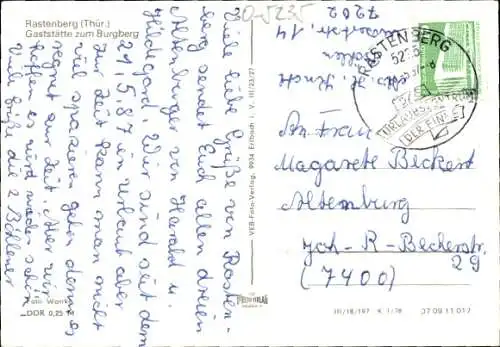 Rastenberg (Thür.)
Gaststätte zum Burgberg
O-5235
Viele liebe Grüße von Rasten-
berg sendet Euch allen dreien
Altenberger von Harald u.
Hildegard. Wir sind seit dem
21.5.87 in Urlaub aber
zur Zeit kann man nicht
viel spazieren gehn denn es
regnet zur Zeit. Aber wir
hoffen es wird wieder schön
Viele Grüße die 2 Böhlener
Foto
DDR 0,25 M
VEB Foto-Verlag, 9934 Erlbach i. V.
III/18/197 K 1/78
07 09 11 017
Abs. H.
14
7202
RASTENBERG
5235
URLAUBSZENTRUM
DER FINNE
An Frau
Magarete Beckert
Altenburg
Joh-R-Becherstr.
29
(7400)